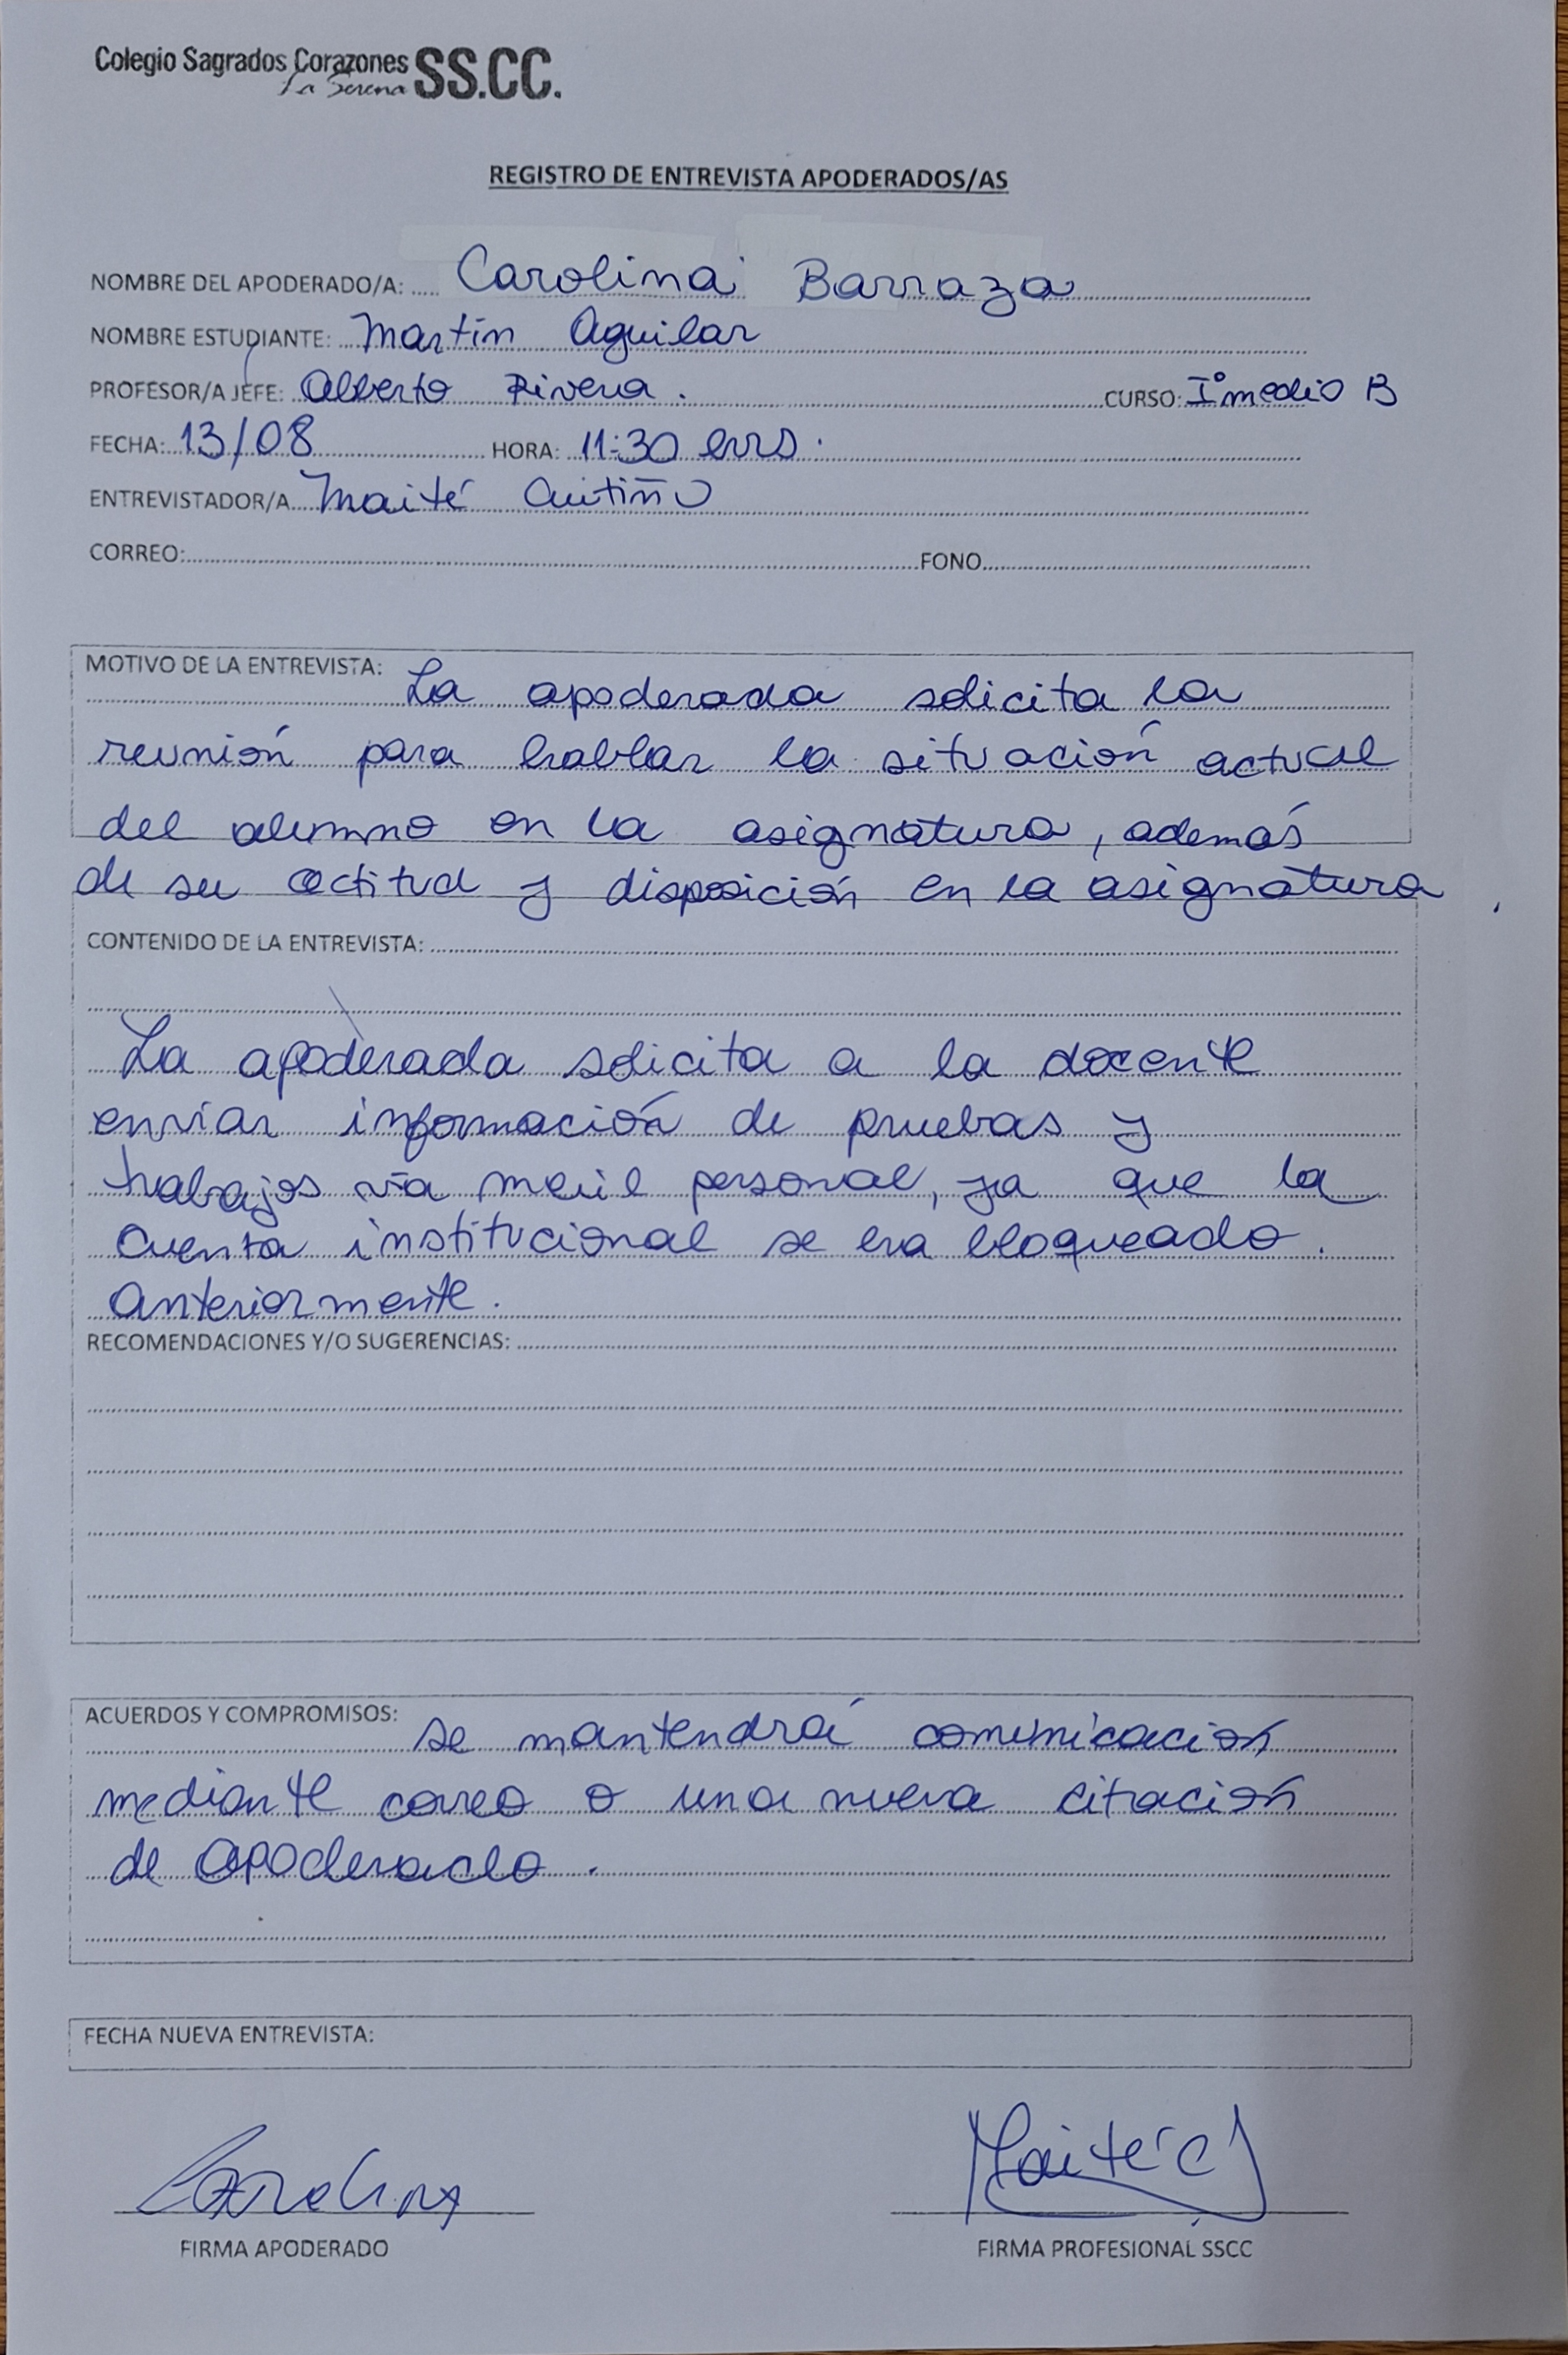 Colegio Sagrados Corazones SS.CC.
La Serena
REGISTRO DE ENTREVISTA APODERADOS/AS
NOMBRE DEL APODERADO/A: Carolina Barraza
NOMBRE ESTUDIANTE: Martín Aguilar
PROFESOR/A JEFE: Alberto Rivera. CURSO: I° medio B
FECHA: 13/08 HORA: 11:30 hrs.
ENTREVISTADOR/A Maité Cuitiño
CORREO: FONO
MOTIVO DE LA ENTREVISTA: La apoderada solicita la
reunión para hablar la situación actual
del alumno en la asignatura, además
de su actitud y disposición en la asignatura
CONTENIDO DE LA ENTREVISTA:
La apoderada solicita a la docente
enviar información de pruebas y
trabajos vía mail personal, ya que la
cuenta institucional se era bloqueado.
Anteriormente.
RECOMENDACIONES Y/O SUGERENCIAS:
ACUERDOS Y COMPROMISOS: se mantendrá comunicación
mediante correo o una nueva citación
de apoderado.
FECHA NUEVA ENTREVISTA:
Carolina Maité C
FIRMA APODERADO FIRMA PROFESIONAL SSCC